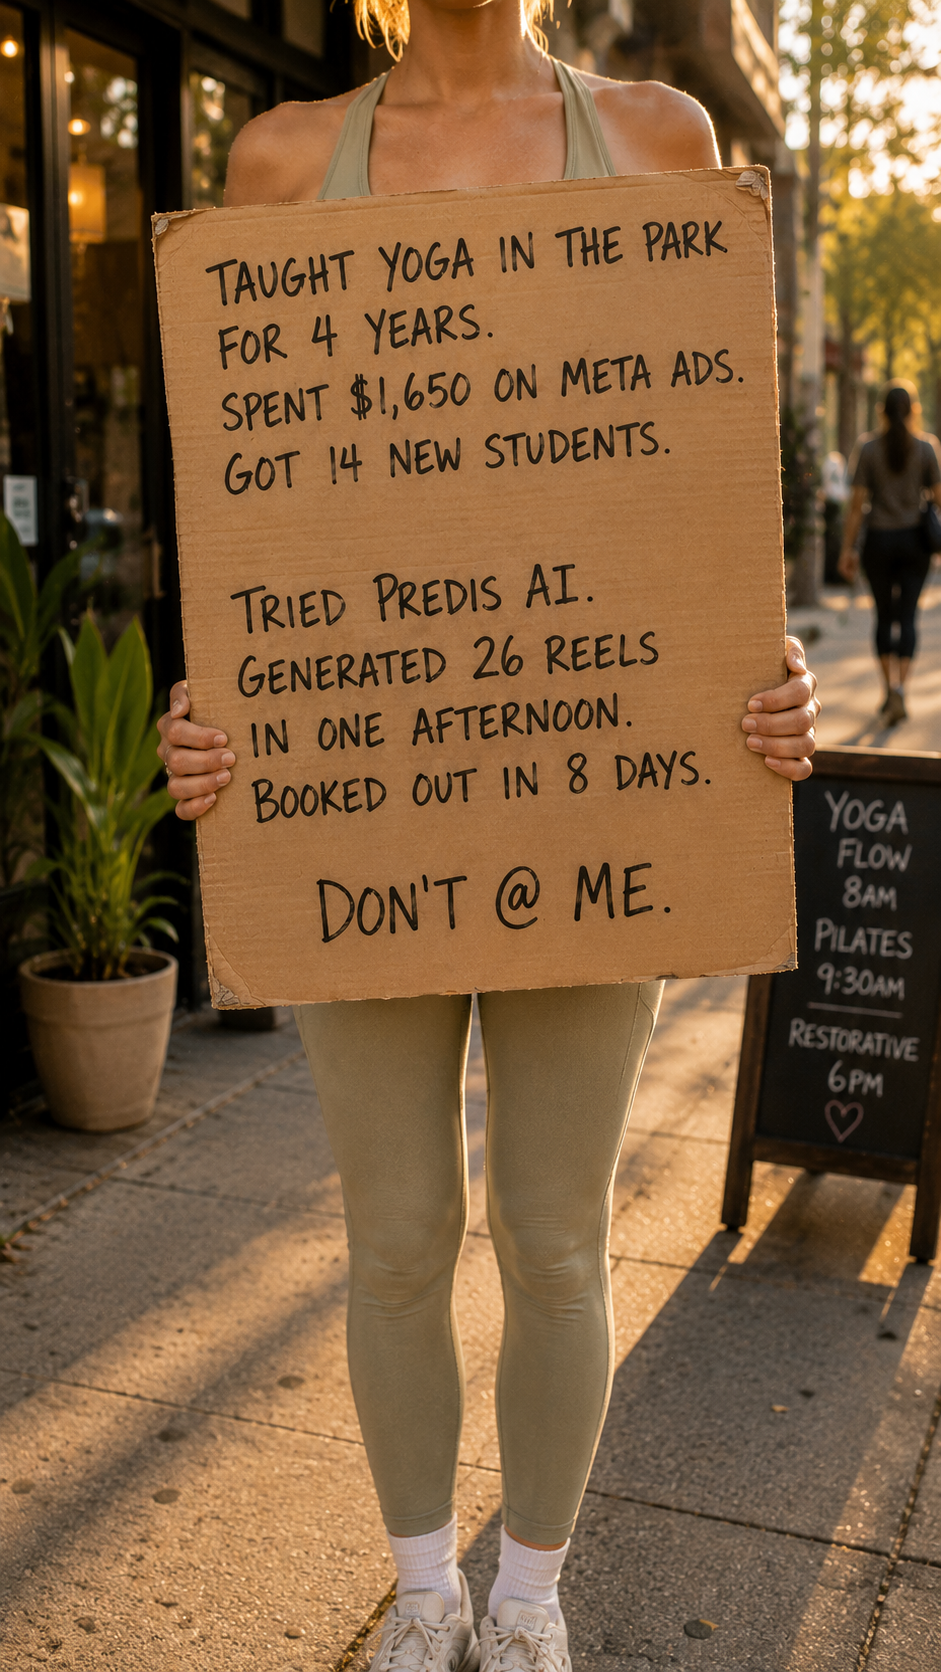 TAUGHT YOGA IN THE PARK
FOR 4 YEARS.
SPENT $1,650 ON META ADS.
GOT 14 NEW STUDENTS.
TRIED PREDIS AI.
GENERATED 26 REELS
IN ONE AFTERNOON.
BOOKED OUT IN 8 DAYS.
DON'T @ ME.
YOGA
FLOW
8AM
PILATES
9:30AM
RESTORATIVE
6PM